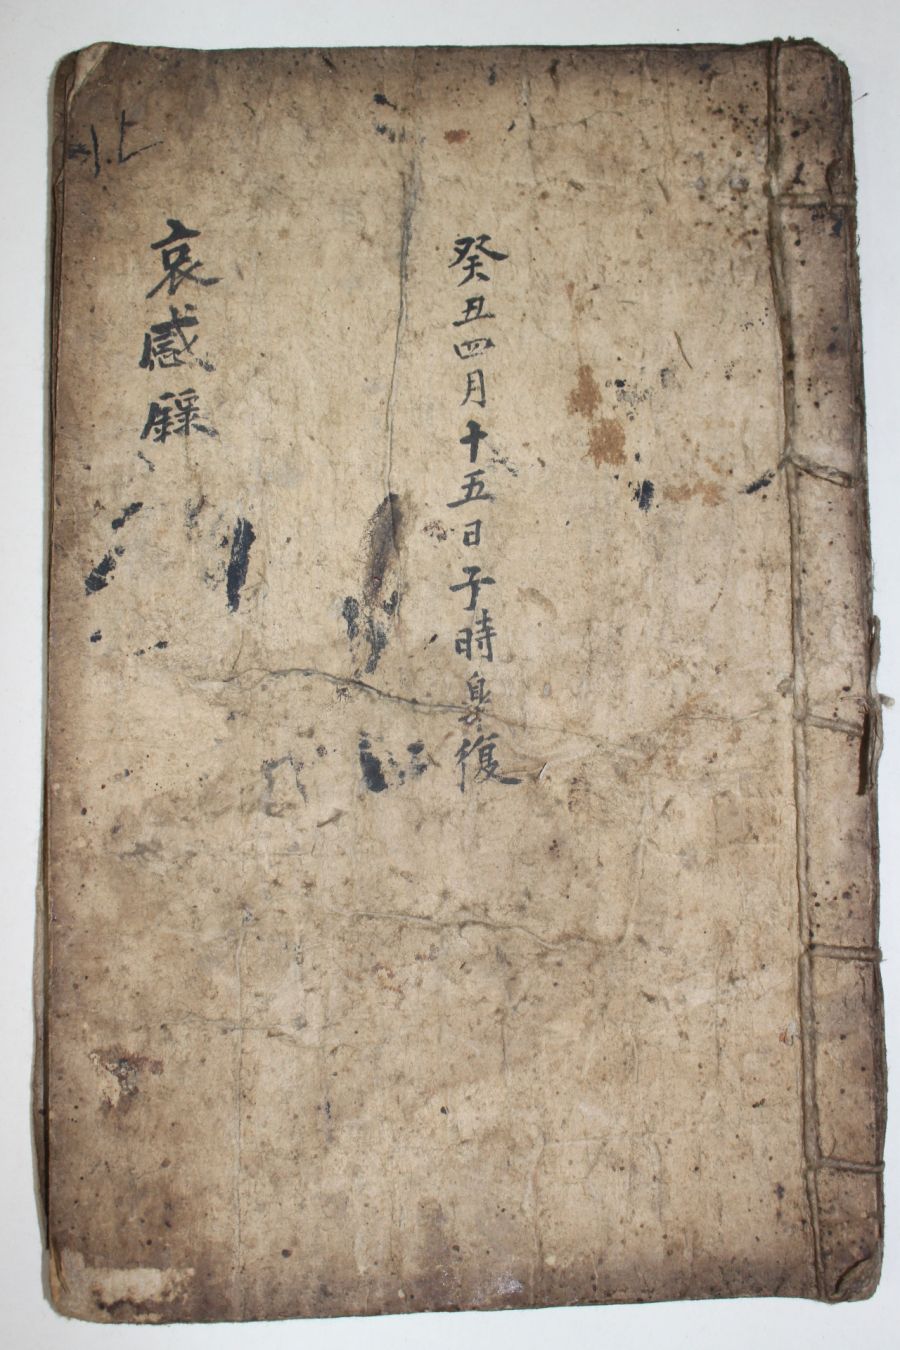 癸丑四月十五日子時皐復
哀感錄